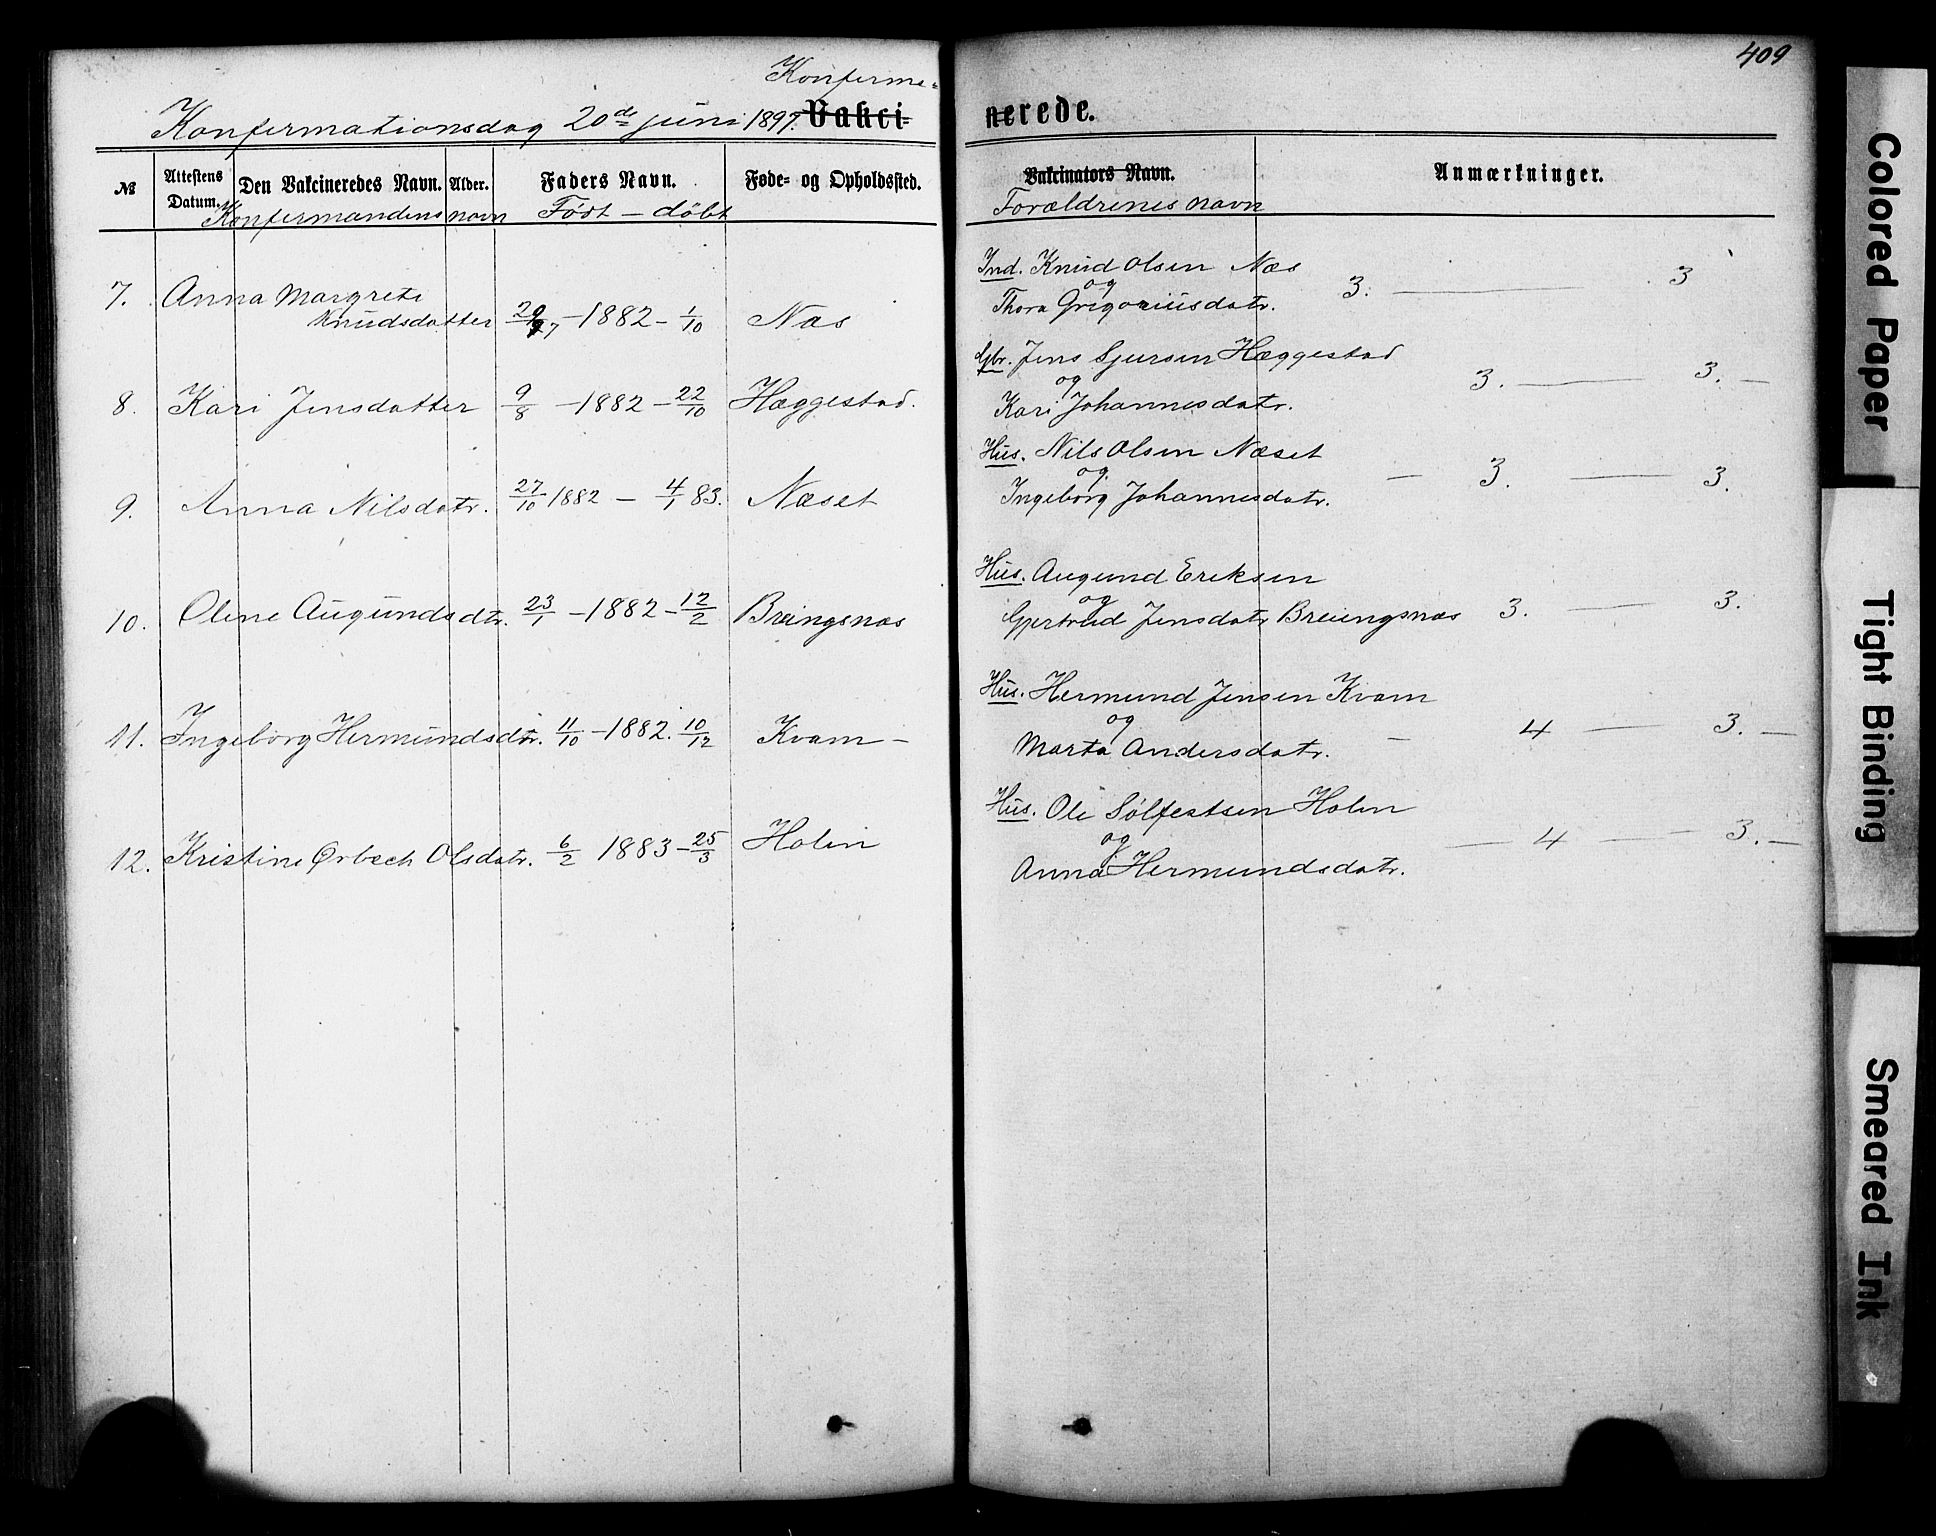 409
Konferme-
Konfermationsdag 20de juni 1897. Vakci-
nerede.
№ Attestens Datum. Den Vakcineredes Navn. Alder. Faders Navn. Føde- og Opholdssted. Vakcinators Navn. Anmærkninger.
Konfermandens navn Født — döbt Forældrenes navn
7. Anna Margrete
Knudsdatter 29/7 – 1882 – 1/10 Næs
Ind. Knud Olsen Næs
og
Thora Grigoriusdatr. 3. — 3
8. Kari Jensdatter 9/8 – 1882 – 22/10 Hæggestad.
Gbr. Jens Sjursen Hæggestad
og
Kari Johannesdatr. 3. — 3. —
9. Anna Nilsdatr. 27/10 1882 – 4/1 83. Næset
Hus. Nils Olsen Næset
og
Ingeborg Johannesdatr. — 3. — 3.
10. Oline Augundsdtr. 23/1 – 1882 – 12/2 Breingsnæs
Hus. Augund Eriksen
og
Gjertrud Jensdatr Breiengsnæs 3. — 3.
11. Ingeborg Hermundsdtr. 11/10 – 1882. 10/12 Kvam –
Hus. Hermund Jensen Kvam
og
Marta Andersdatr. — 4 — 3. —
12. Kristine Ørbech Olsdatr. 6/2 1883 – 25/3 Holen
Hus. Ole Sølfestsen Holen
og
Anna Hermundsdatr. — 4 — 3. —
Colored Paper
Tight Binding
Smeared Ink